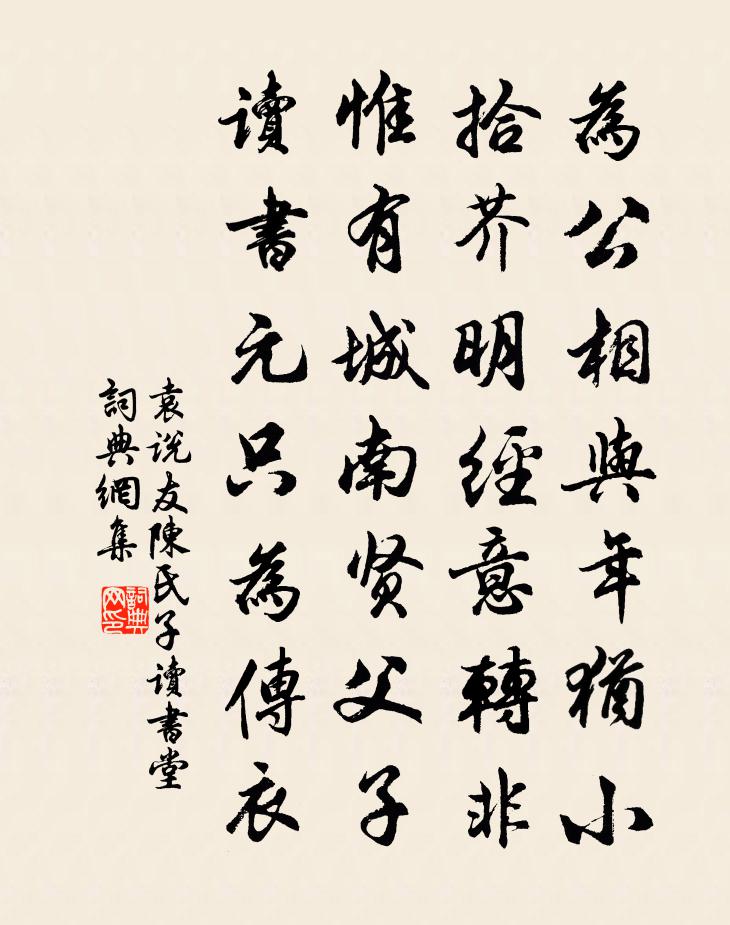 為公相與年猶小
拾芥明經意轉非
惟有城南贤父子
讀書元只為傳衣
袁说友陳氏子讀書堂
詞典網集
詞典网印